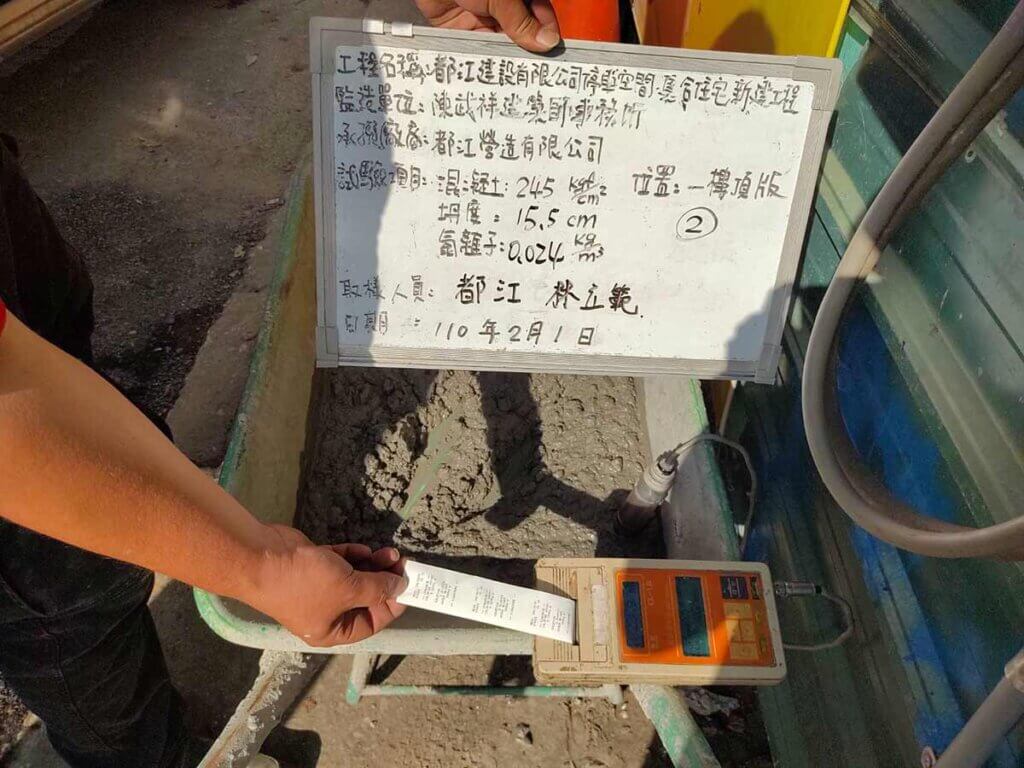 工程名稱:都江建設有限公司停墅空間-集合住宅新建工程
監造單位:陳武祥建築師事務所
承攬廠商:都江營造有限公司
試驗項目:混凝土:245 kgf/cm² 位置:一樓頂版
坍度:15.5cm ②
氯離子:0.024 kg/m³
取樣人員:都江 林立範.
日期:110年2月1日